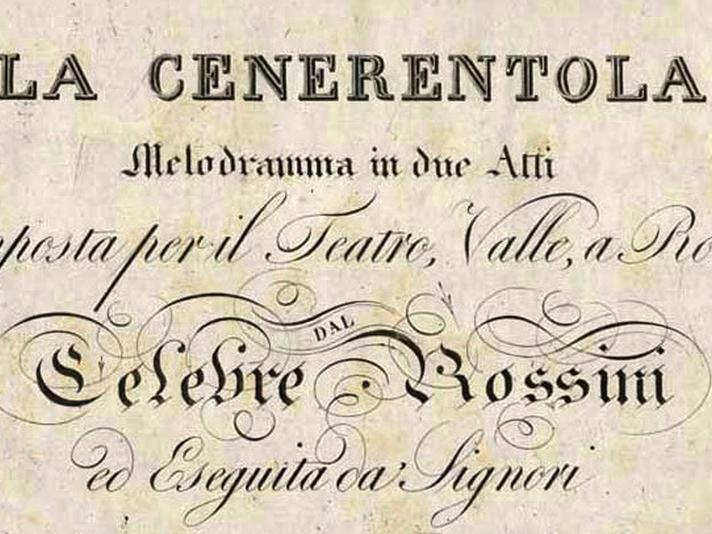 LA CENERENTOLA
Melodramma in due Atti
mposta per il Teatro, Valle, a Ro
DAL
Celebre Rossini
ed Eseguita da' Signori